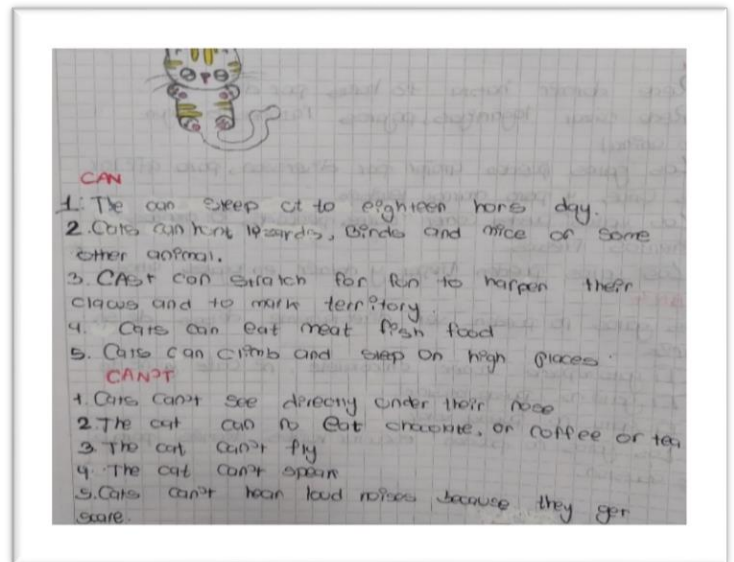 CAN
1. The can sleep ct to eighteen hors day.
2. Cats can hunt lizards, Birds and mice or some
other animal.
3. CAst can stratch for fun to harpen their
claws and to mark territory
4. Cats can eat meat fish food
5. Cats can climb and sleep on high places.
CAN'T
1. Cats can't see directly under their nose
2 The cat can no eat chocolate, or coffee or tea
3. The cat can't fly
4. The cat can't speak
5. Cats can't hear loud noises because they get
scare.